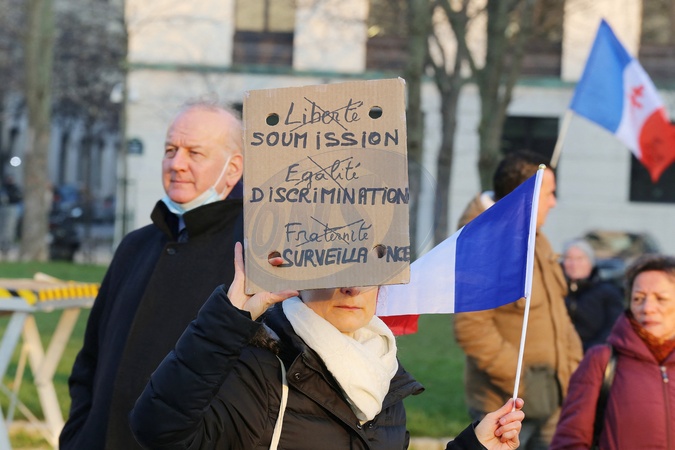 Liberté
SOUMISSION
Egalité
DISCRIMINATION
Fraternité
SURVEILLANCE